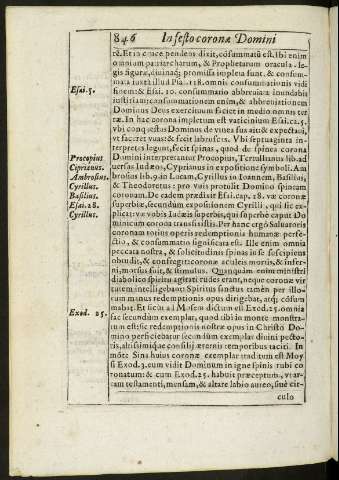 846 In festo coronæ Domini
rē. Et in cruce pendens dixit, cōsummatū est. Ibi enim
omnium patriarcharum, & Prophetarum oracula. legis
figuræ, divinæq; promissa impleta sunt. & consummata
iuxta illud Psa. 118. omnis consummationis vidi
Esai. 5.
finem: & Esai. 10. consummatio abbreuiata inundabit
iustitiam: consummationem enim, & abbreuiationem
Dominus Deus exercituum faciet in medio omnis terræ.
In hac corona impletum est vaticinium Esai. ca. 5.
vbi conquestus Dominus de vinea sua ait & expectaui,
vt faceret vuas: & fecit labruscas. Vbi septuaginta interpretes
legunt, fecit spinas, quod de spinea corona
Procopius
Ciprianus.
Ambrosius.
Cyrillus.
Basilius.
Esai. 28.
Cyrillus.
Domini interpretantur Procopius, Tertullianus lib. aduersus
Iudæos, Cyprianus in expositione symboli. Ambrosius
lib. 9. in Lucam, Cyrillus in Ioannem, Basilius,
& Theodoretus: pro vuis protulit Domino spineam
coronam. De eadem prædixit Esai. cap. 28. væ coronæ
superbiæ, secundum expositionem Cyrilli, qui sic explicat:
væ vobis Iudæis superbis, qui superbè caput Dominicum
corona transfixistis. Per hanc ergò Saluatoris
coronam totius operis redemptionis humanæ perfectio,
& consummatio significata est. Ille enim omnia
peccata nostra, & solicitudinis spinas in se suscipiens
obtudit, & confregit: coronæ aculeis mortis, & inferni,
morsus fuit, & stimulus. Quanquàm enim ministri
diabolico spiritu agitati rudes erant, neque coronæ virtutem
intelligebant: Spiritus sanctus tamen per illorum
manus redemptionis opus dirigebat, atq; cōsummabat.
Et sicut ad Mosem dictum est Exod. 25. omnia
Exod. 25.
fac secundum exemplar, quod tibi in monte monstratum
est: sic redemptionis nostræ opus in Christo Domino
perficiebatur secundum exemplar diuini pectoris,
altissimique consilij æternis temporibus taciti. In
mōte Sina huius coronæ exemplar traditum est Moysi
Exod. 3. cum vidit Dominum in igne spinis rubi coronatum:
& cum Exod. 25. habuit præceptum, vt arcam
testamenti, mensam, & altare labio aureo, siuè circulo